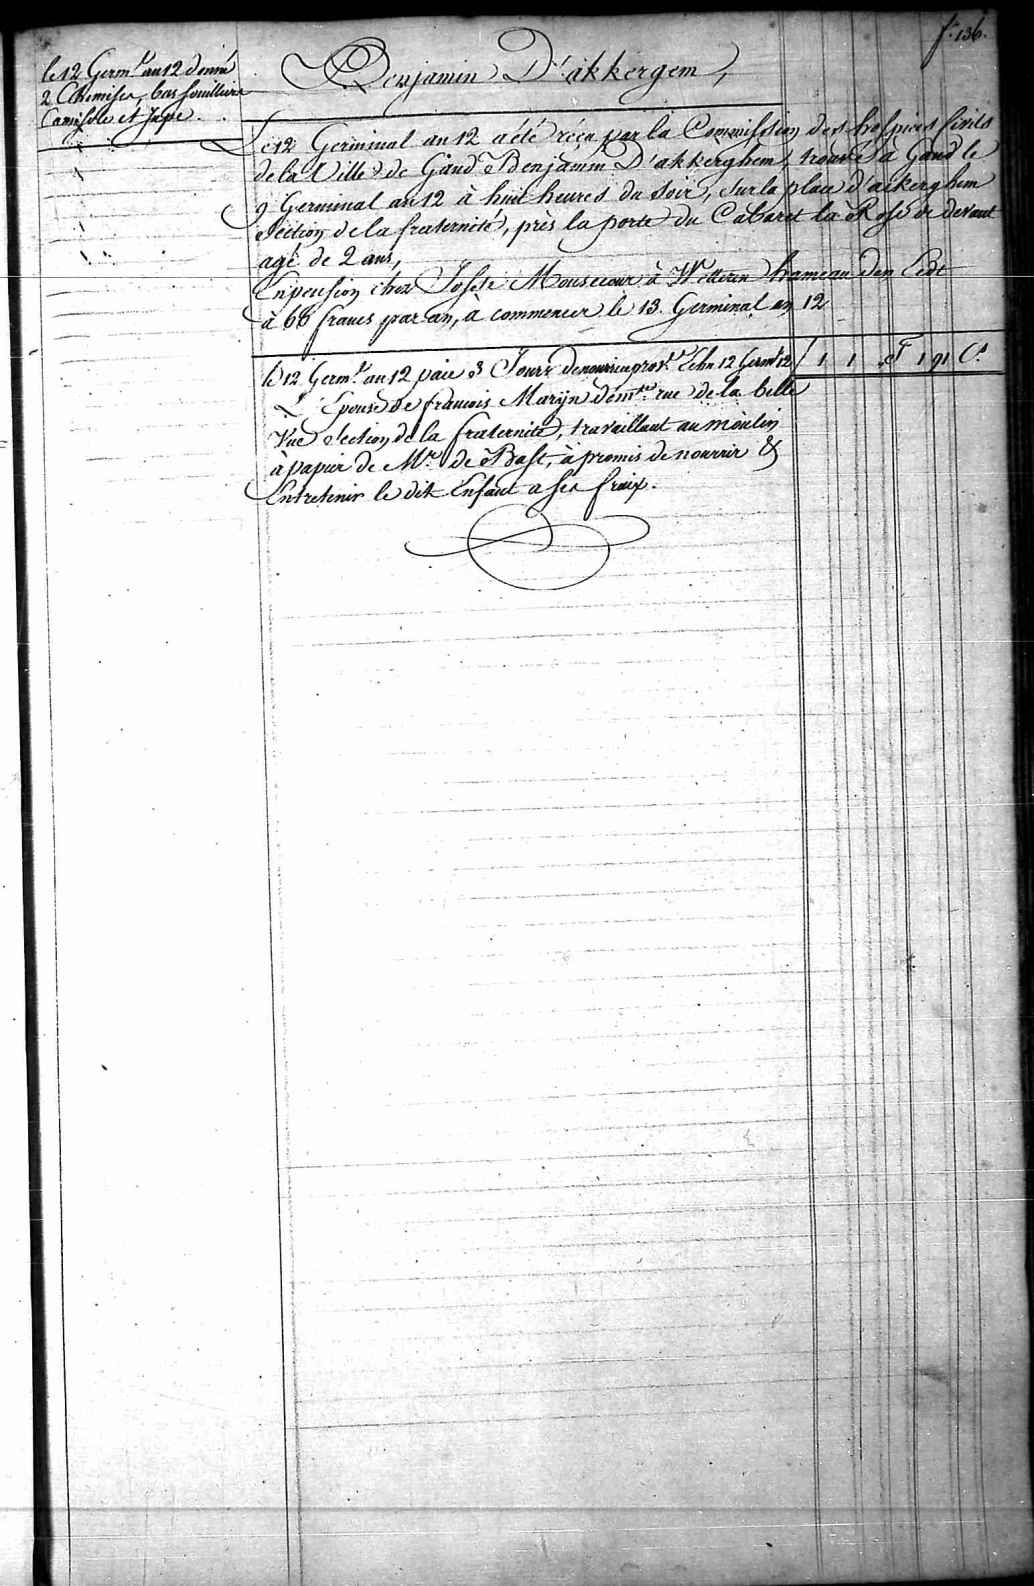 f.° 136.
Benjamin D'akkergem,
le 12 Germ.l an 12 donné
2 Chemises, bas souilliers
Camisole et Jupe.
Le 12 Germinal an 12 a été réçu par la Commission des hospices Civils
de la Ville de Gand Benjamin D'akkèrghem, trouvé à Gand le
9 Germinal an 12 à huit heures du soir, sur la place d'aikerghem
Section de la fraternité, près la porte du Cabaret la Rose de devant
agé de 2 ans,
En pension chez Josete Mousecour à Wetteren hameau den Eede
à 66 francs par an, à commencer le 13. Germinal an 12
le 12 Germ.l an 12 paié 3 Jours de nourrice prov.re Echu 12 Germ.l 12 f 1 1 91 C.s
L'Epouse de francois Marijn dem.te rue de la belle
Vue Section de la fraternité, travaillant au moùlin
à papier de M.r de Bast, a promis de nourrir &
Entretenir le dit Enfant a ses fraix.